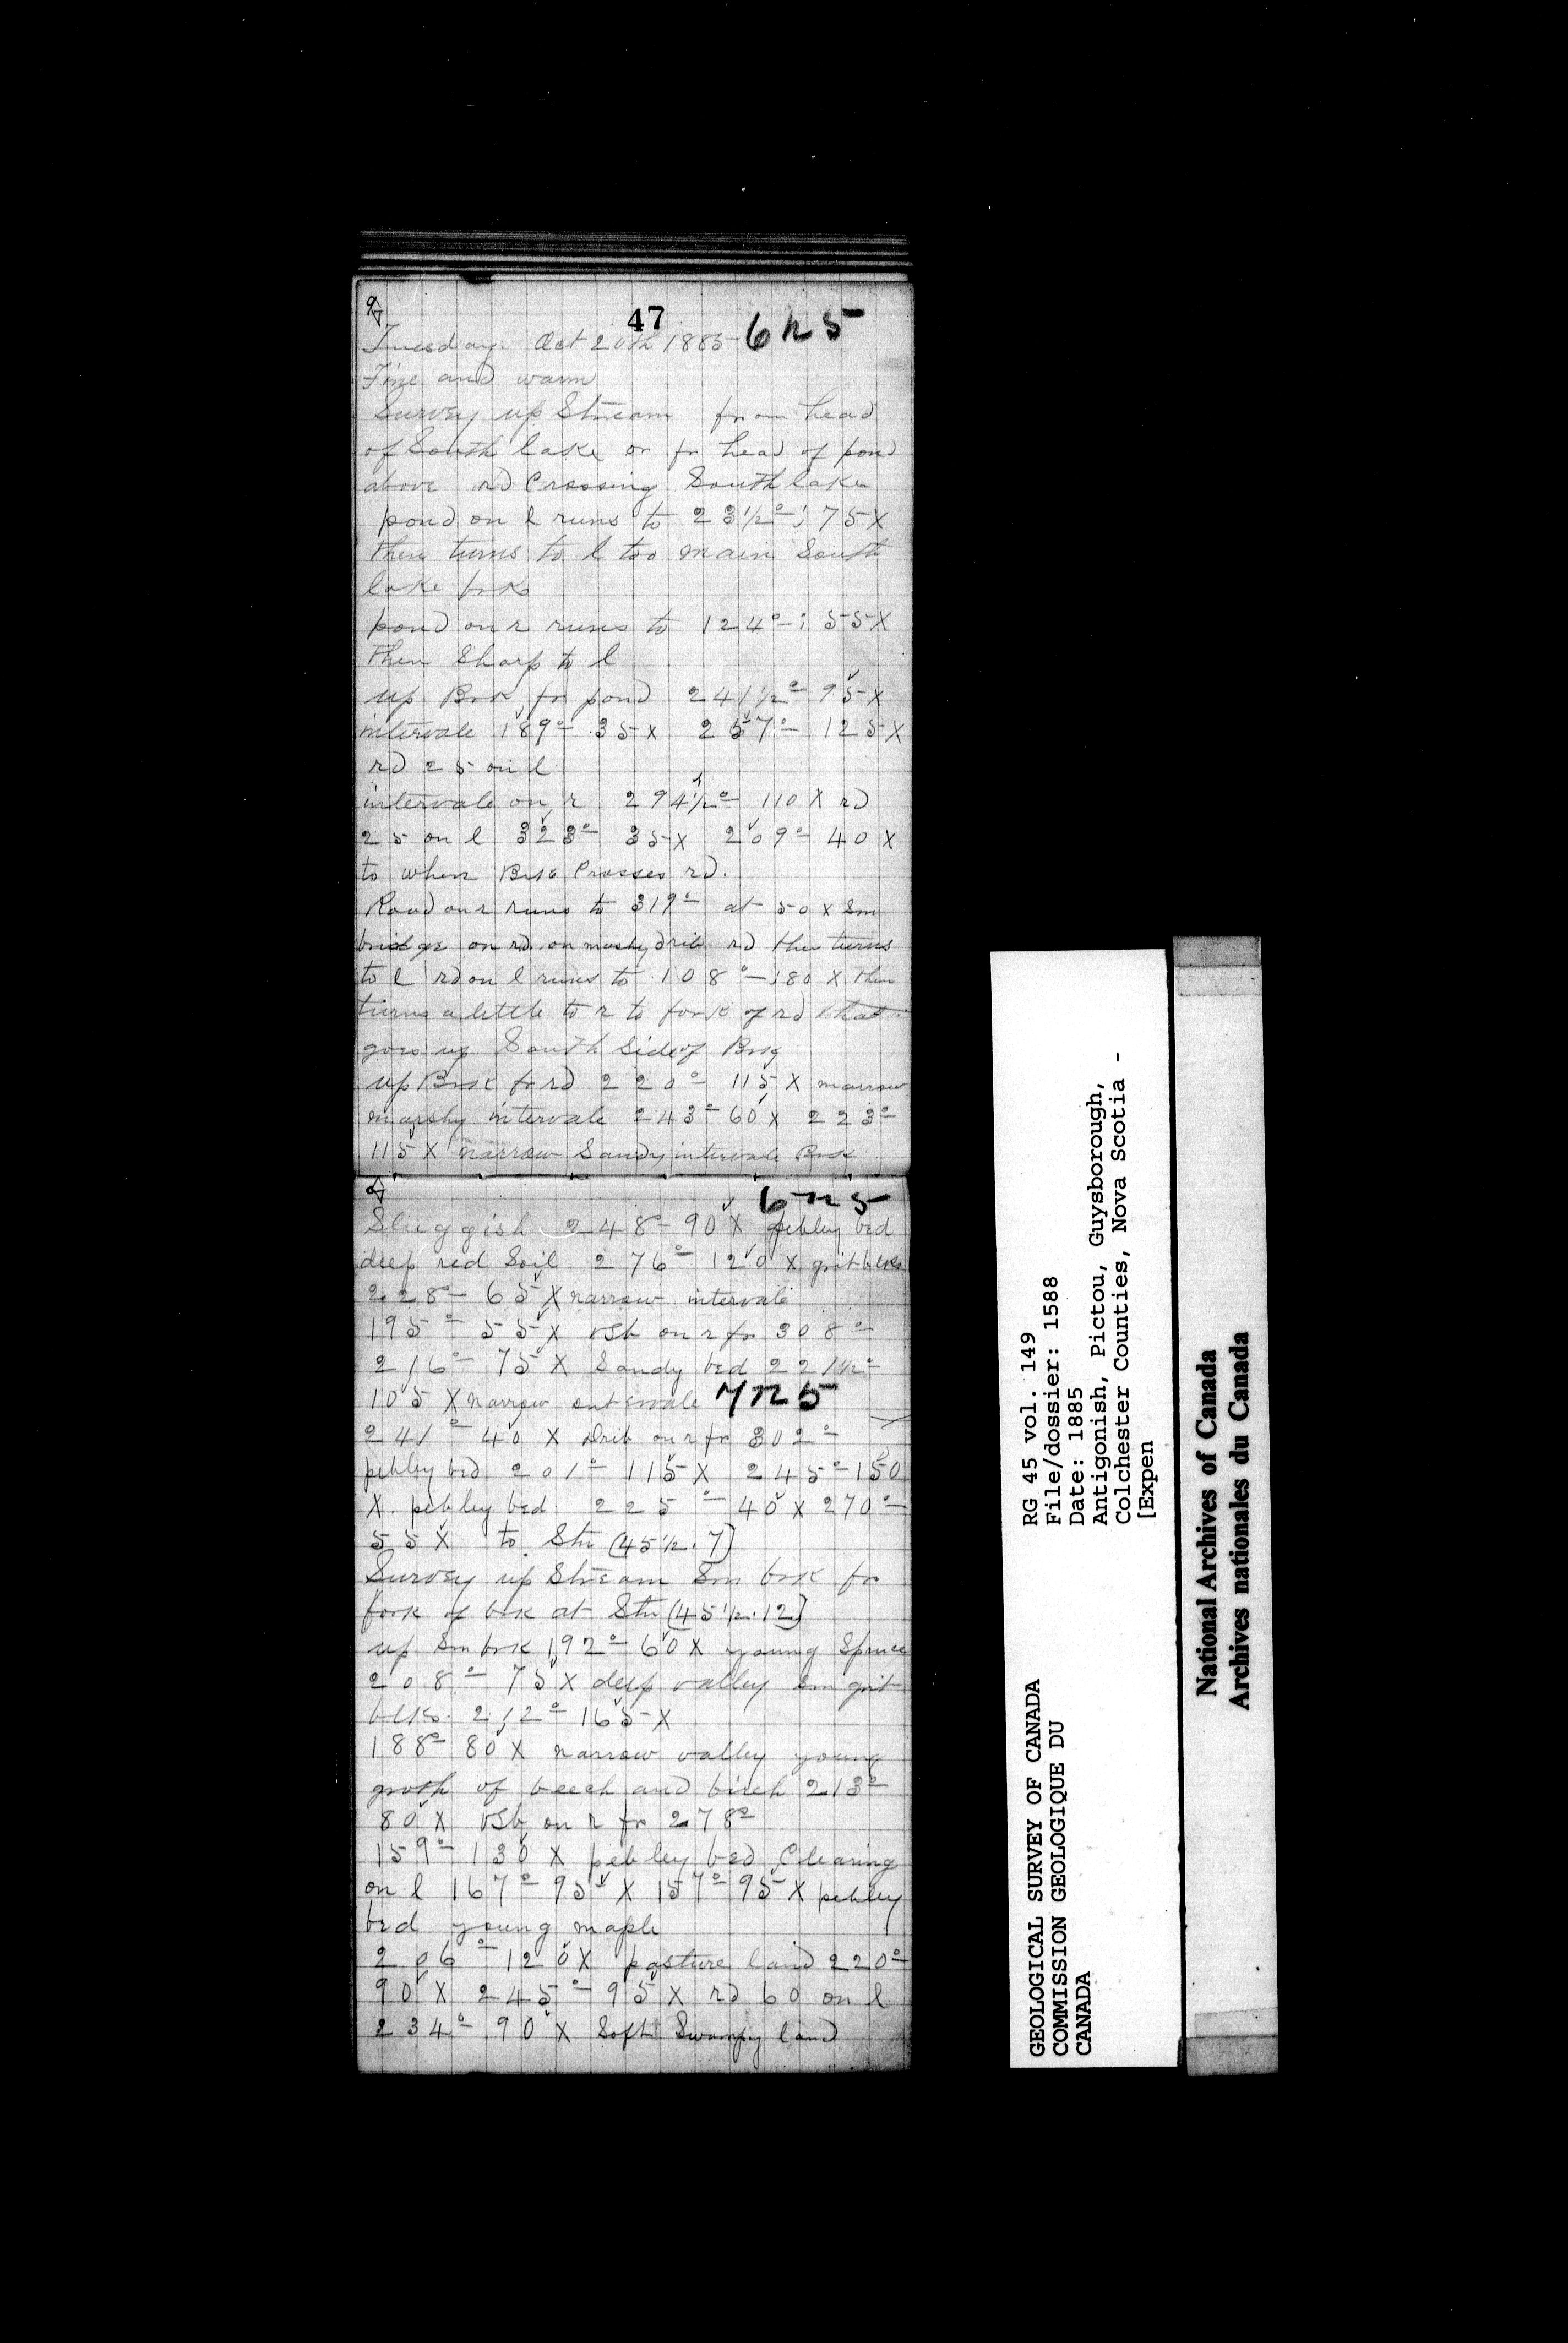 47
6 n 5
Tuesday. Oct 20th 1885
Fine and warm
Survey up Stream from head
of South lake or fr head of pond
above rd Crossing South lake
pond on l runs to 23 1/2° ; 75 X
then turns to l too main South
lake brk
pond on r runs to 124° ; 55 X
then Sharp to l
up Brk fr pond 241 1/2° 95 X
intervale 189° 35 X 257° 125 X
rd 25 on l
intervale on r 294 1/2° 110 X rd
25 on l 323° 35 X 209° 40 X
to where Brk Crosses rd.
Road on r runs to 319° at 50 X Sm
bridge on rd. on marshy drib rd then turns
to l rd on l runs to 108° ; 80 X then
turns a little to r to fork of rd that
goes up South Side of Brk
up Brk fr rd 220° 115 X narrow
marshy intervale 243° 60 X 223°
115 X narrow Sandy intervale Brk
6 n 5
Sluggish 248° 90 X pebley bed
deep red Soil 276° 120 X grit blks
228° 65 X narrow intervale
195° 55 X vSb on r fr 308°
216° 75 X Sandy bed 221 1/2°
105 X narrow intervale 7 n 5
241° 40 X Drib on r fr 302°
pebley bed 201° 115 X 245° 150
X. pebley bed 225° 40 X 270°
55 X to Stn (45 1/2. 7]
Survey up Stream Sm brk fr
fork of brk at Stn (45 1/2. 12]
up Sm brk 192° 60 X young Spruce
208° 75 X deep valley Sm grit
blks. 212° 165 X
188° 80 X narrow valley young
groth of beech and birch 213°
80 X vSb on r fr 278°
159° 130 X pebley bed Clearing
on l 167° 95 X 157° 95 X pebley
bed young maple
206° 120 X pasture land 220°
90 X 245° 95 X rd 60 on l
234° 90 X Soft Swampy land
GEOLOGICAL SURVEY OF CANADA
COMMISSION GEOLOGIQUE DU
CANADA
RG 45 vol. 149
File/dossier: 1588
Date: 1885
Antigonish, Pictou, Guysborough,
Colchester Counties, Nova Scotia -
[Expen
National Archives of Canada
Archives nationales du Canada